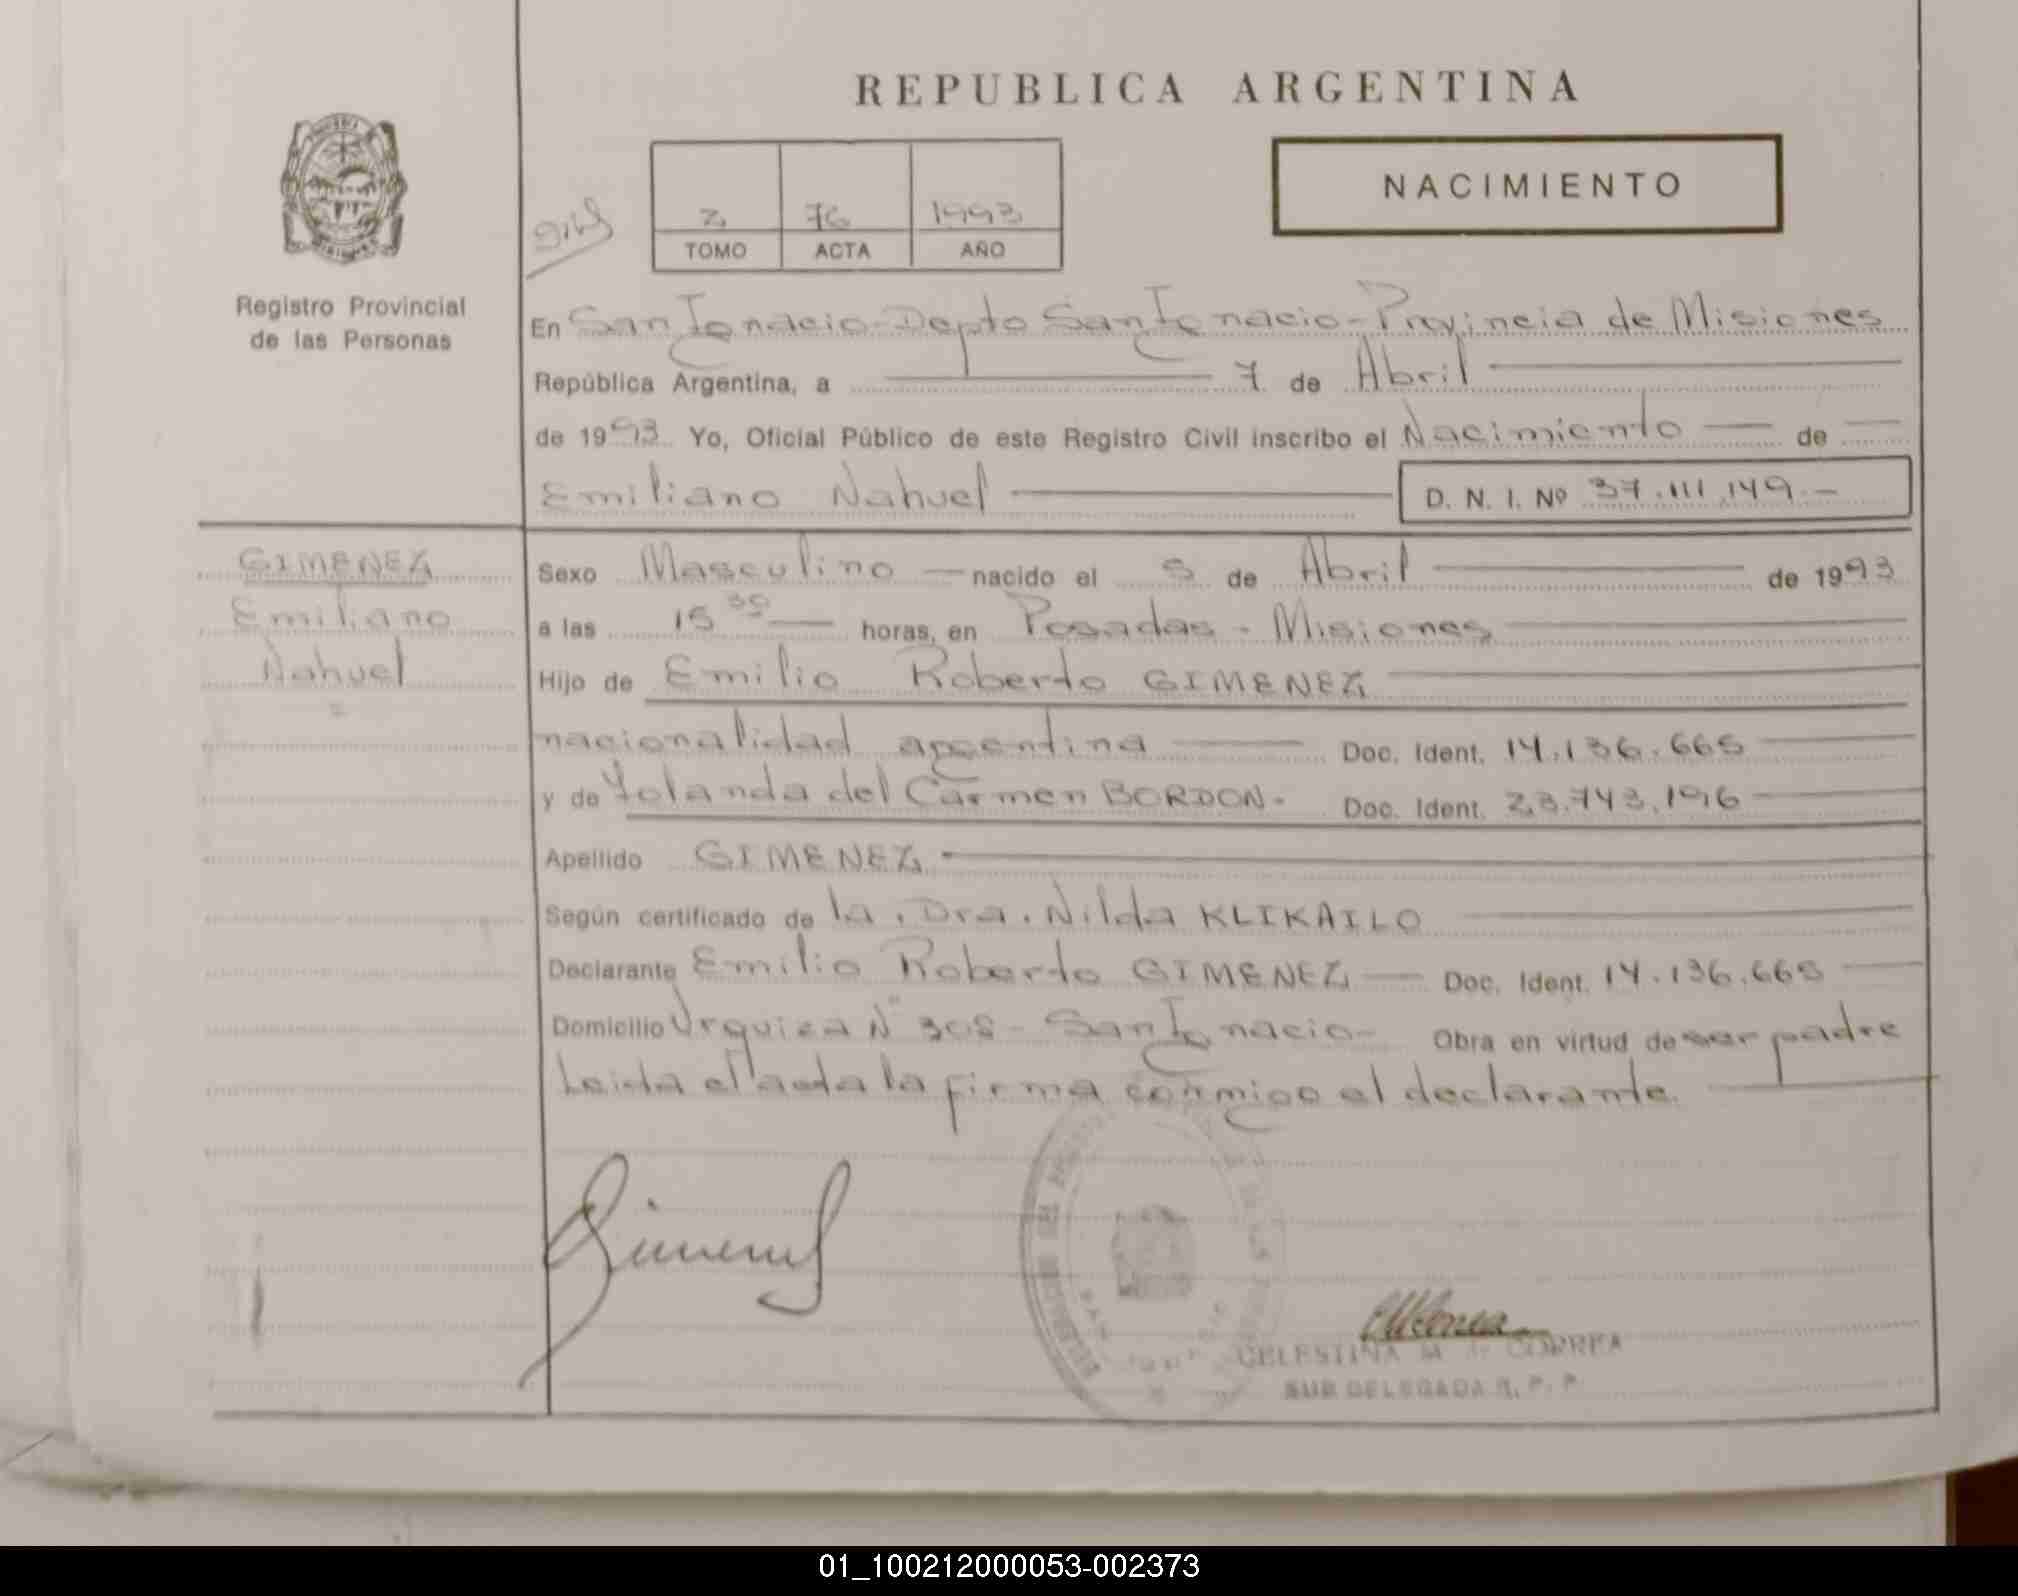 REPUBLICA ARGENTINA
NACIMIENTO
2 76 1993
TOMO ACTA AÑO
Registro Provincial
de las Personas
En San Ignacio-Depto San Ignacio-Provincia de Misiones
República Argentina, a 7 de Abril
de 1993 Yo, Oficial Público de este Registro Civil inscribo el Nacimiento — de —
Emiliano Nahuel
D. N. I. Nº 37.111.149.-
GIMENEZ
Emiliano
Nahuel
Sexo Masculino — nacido el 5 de Abril de 1993
a las 15 30 — horas, en Posadas - Misiones
Hijo de Emilio Roberto GIMENEZ
nacionalidad argentina — Doc. Ident. 14.136.665
y de Yolanda del Carmen BORDON- Doc. Ident. 23.743.196
Apellido GIMENEZ
Según certificado de la. Dra. Nilda KLIKAILO
Declarante Emilio Roberto GIMENEZ — Doc. Ident. 14.136.665
Domicilio Urquiza Nº 305 - San Ignacio- Obra en virtud de ser padre
Leida el acta la firma conmigo el declarante.
CELESTINA M. de CORREA
SUB DELEGADA R. P. P.
01_100212000053-002373